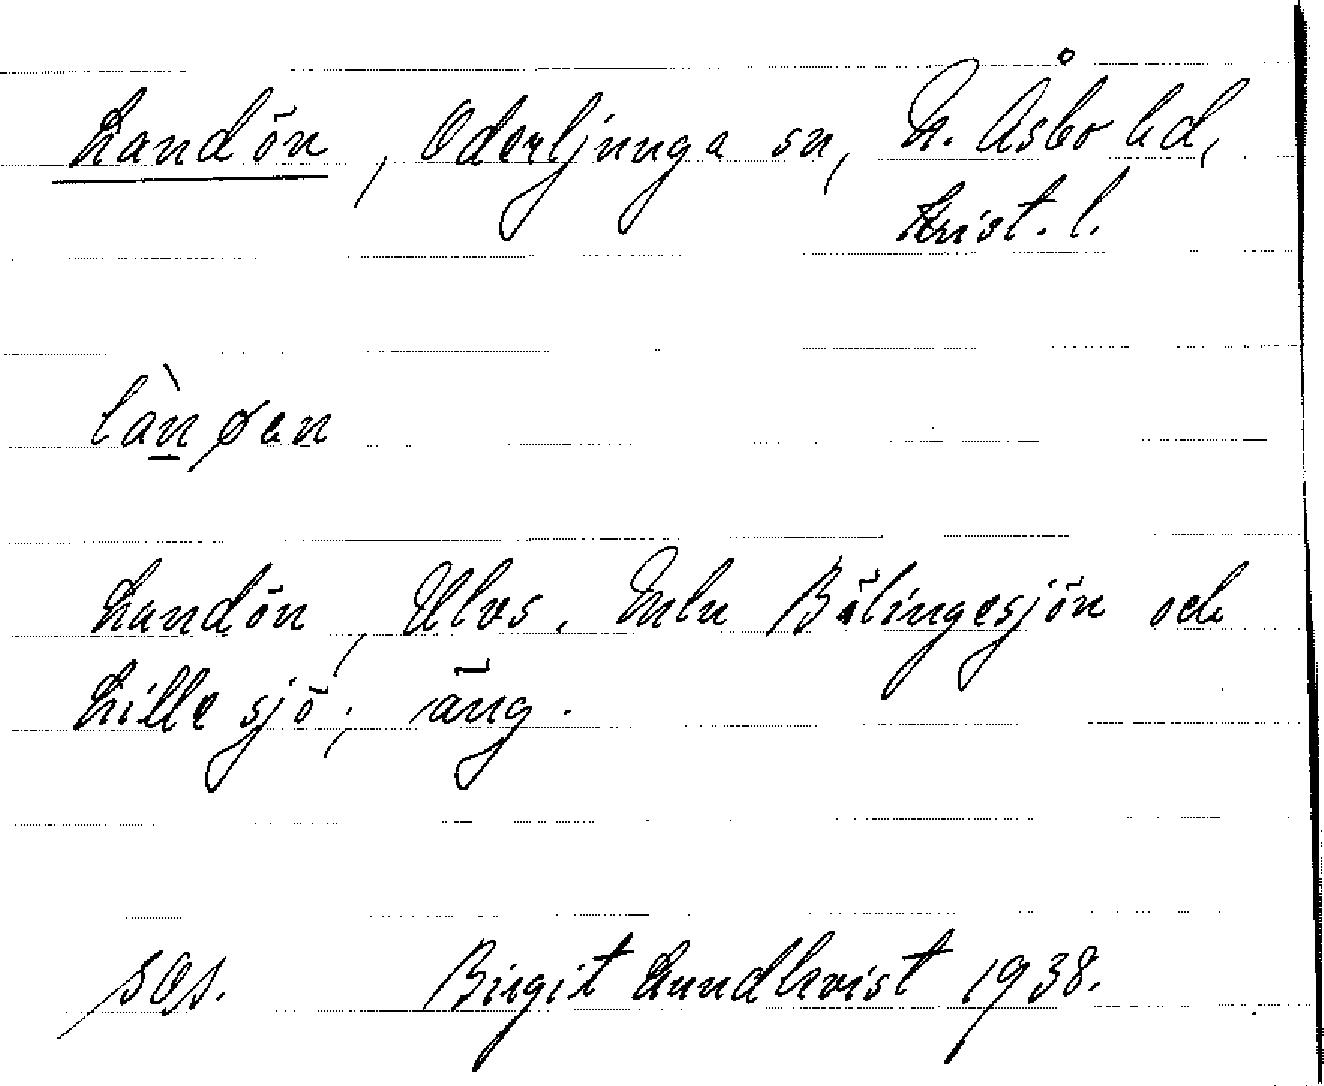 Landön, Oderljunga sn, N. Åsbo hd,
Krist. l.
lànøen
Landön, Ulvs. Mln Bälingesjön och
Lille sjö; äng.
sOs. Birgit Lundkvist 1938.